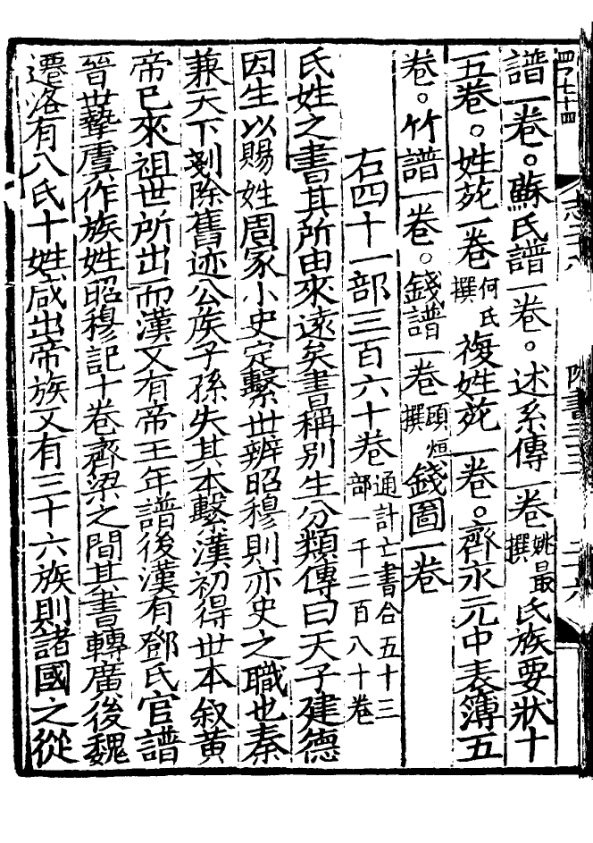 四七十四
志二八
隋書三三
二十六
譜一卷。蘇氏譜一卷。述系傳一卷姚最撰氏族要狀十
五卷。姓苑一卷何氏撰複姓苑一卷。齊永元中表簿五
卷。竹譜一卷。錢譜一卷顧烜撰錢圖一卷
右四十一部三百六十卷通計亡書合五十三部一千二百八十卷
氏姓之書其所由來遠矣書稱别生分類傳曰天子建德
因生以賜姓周家小史定繫世辨昭穆則亦史之職也秦
兼天下剗除舊迹公族子孫失其本繫漢初得世本叙黄
帝已來祖世所出而漢又有帝王年譜後漢有鄧氏官譜
晉世摯虞作族姓昭穆記十卷齊梁之間其書轉廣後魏
遷洛有八氏十姓咸出帝族又有三十六族則諸國之從